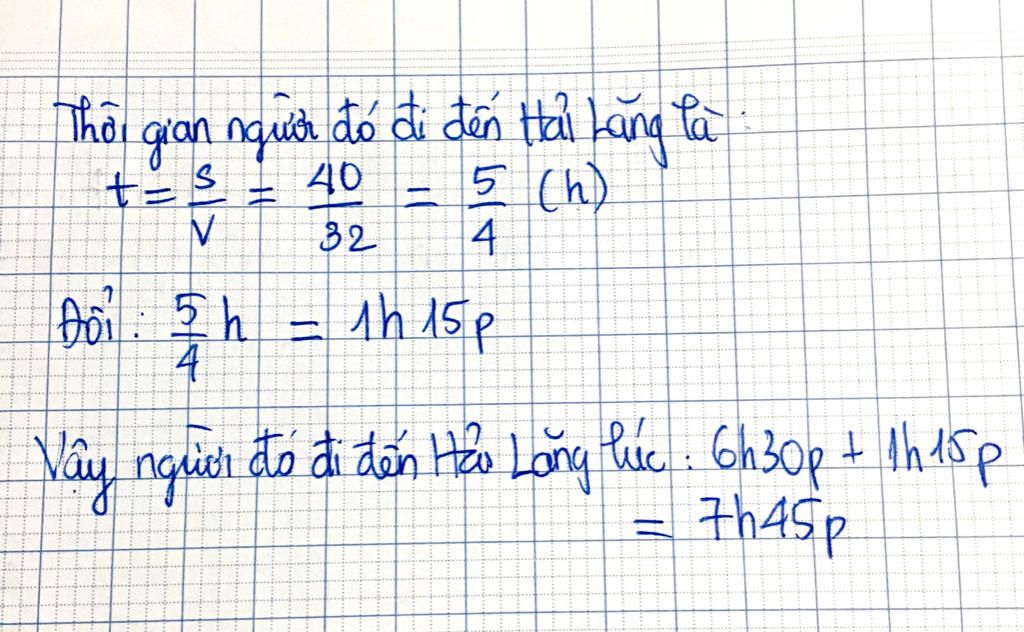 Thời gian người đó đi đến Hải Lăng là:
t = s/v = 40/32 = 5/4 (h)
Đổi: 5/4 h = 1h 15p
Vậy người đó đi đến Hải Lăng lúc: 6h30p + 1h15p
= 7h45p